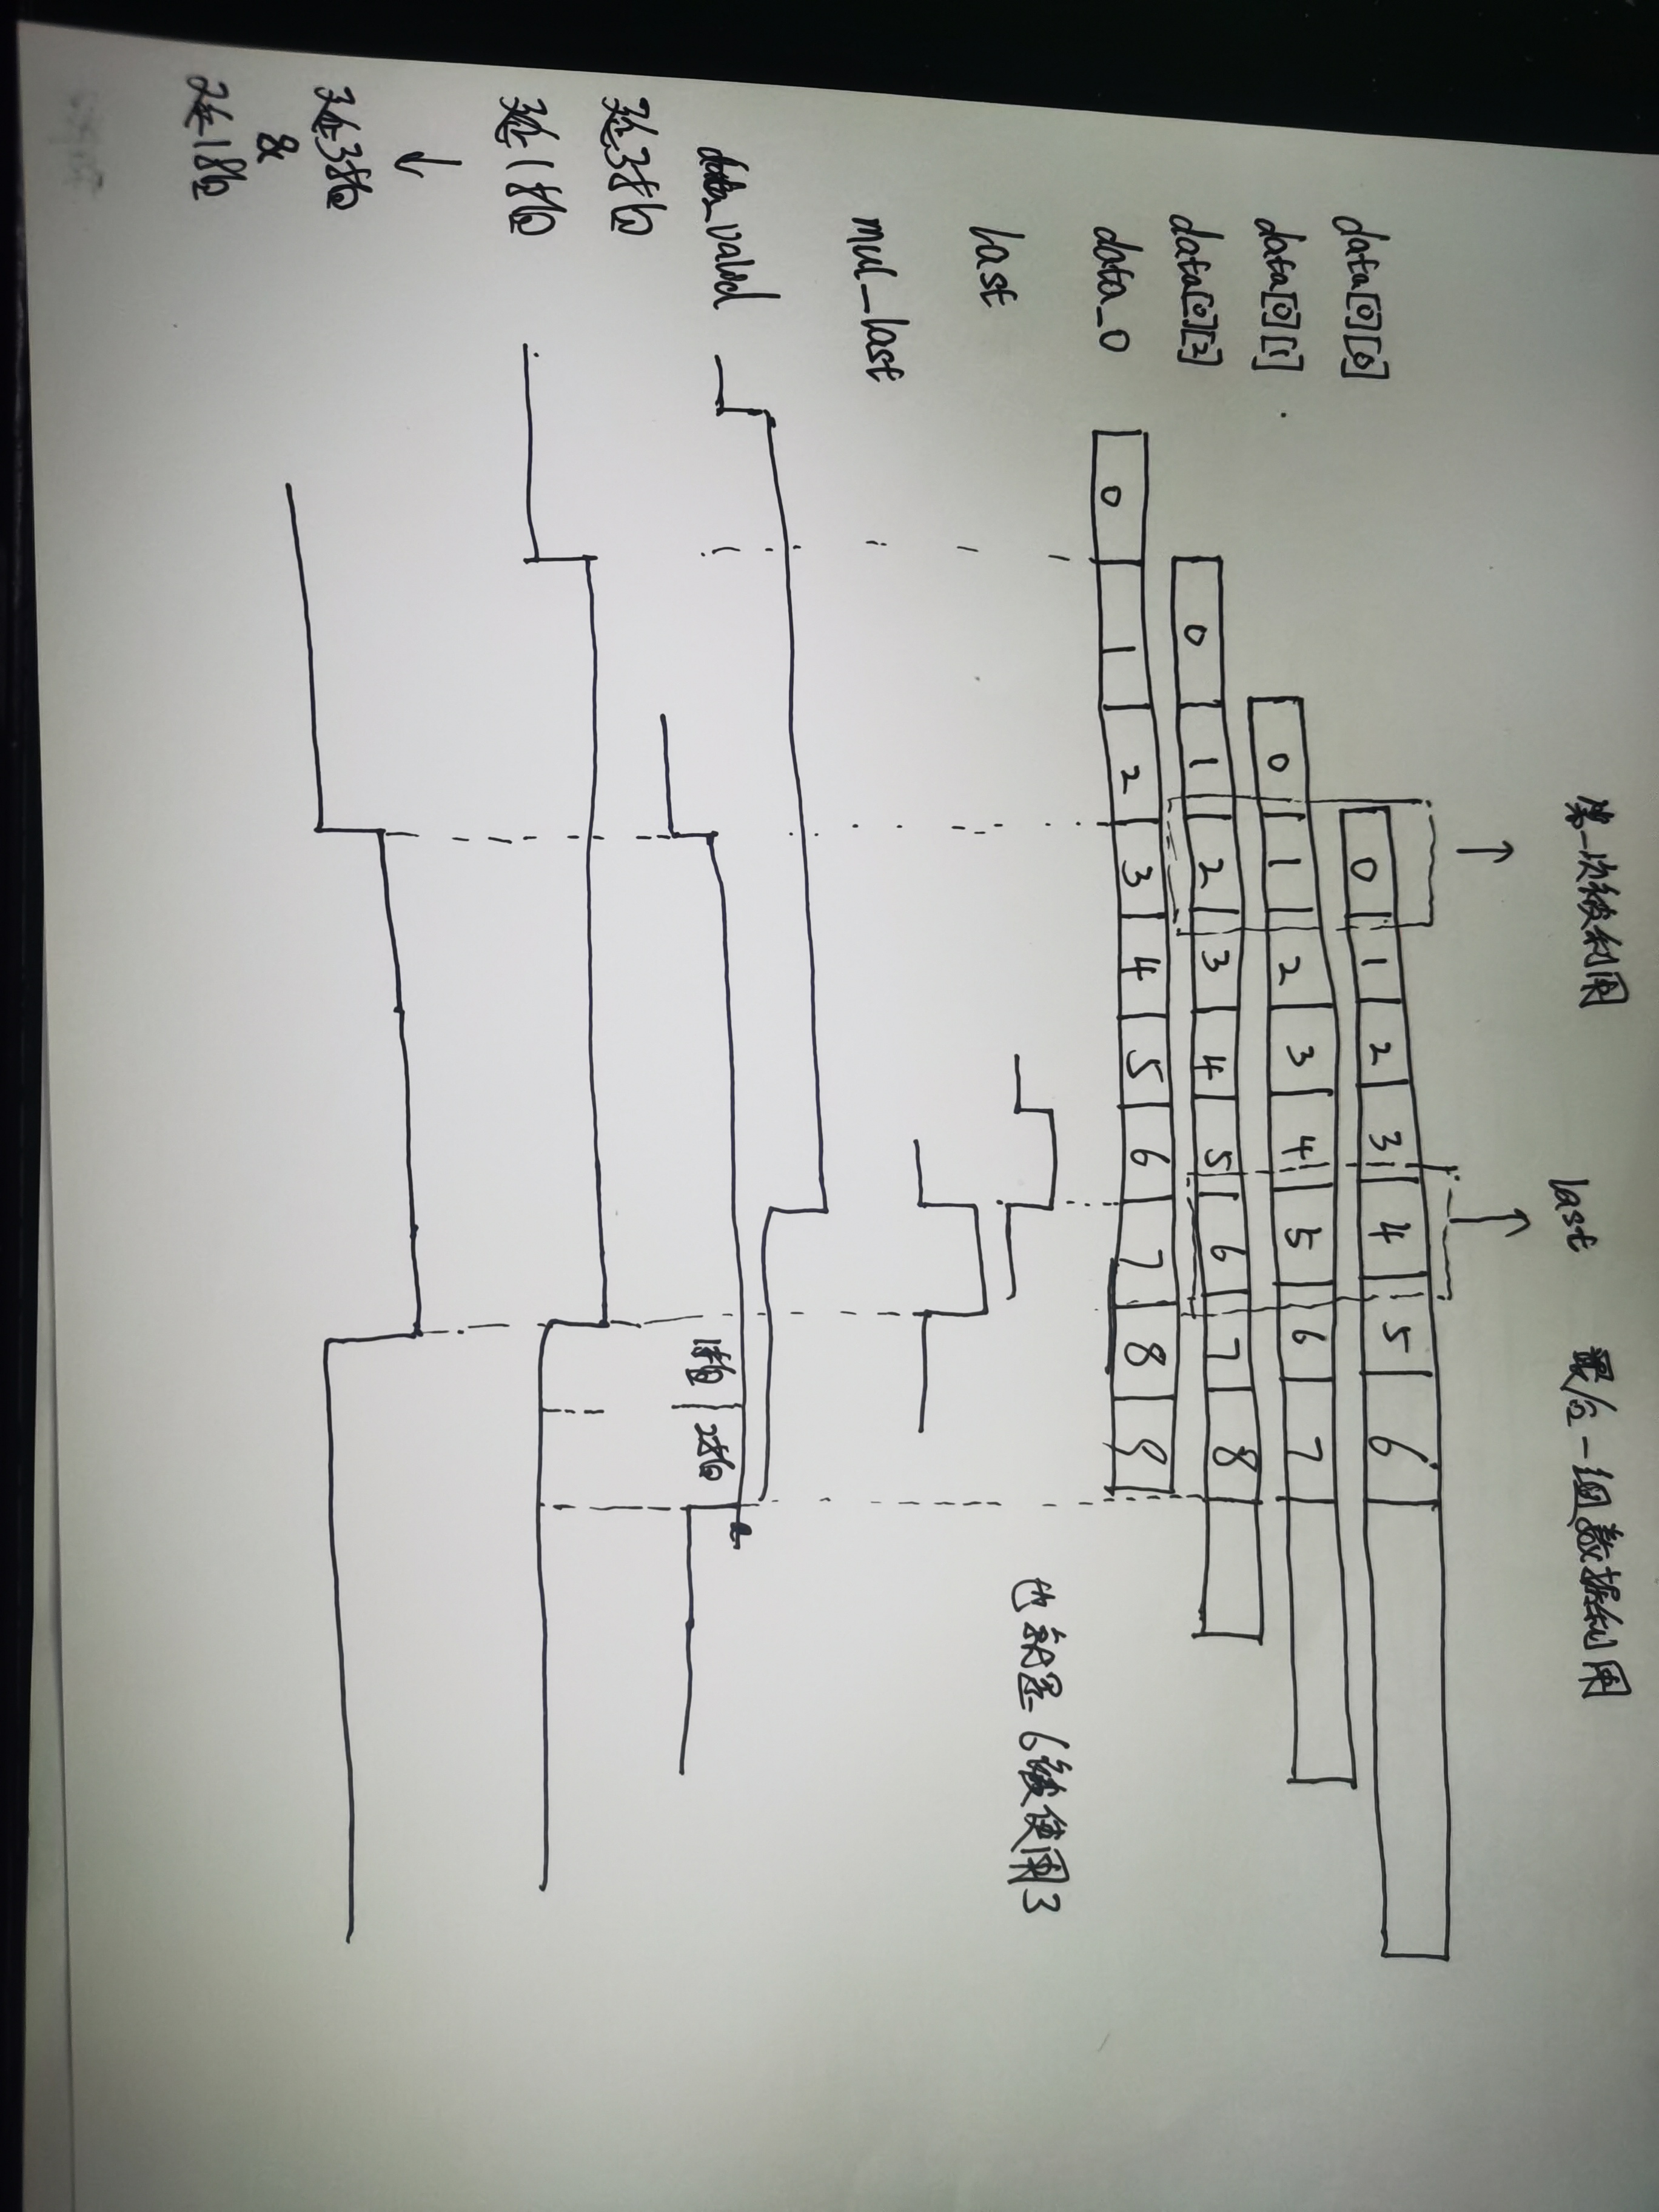 第一次被利用
last
最后一组数据利用
data[0][0] 0 1 2 3 4 5 6
data[0][1] 0 1 2 3 4 5 6 7
data[0][2] 0 1 2 3 4 5 6 7 8
data_0 0 1 2 3 4 5 6 7 8 9
last
也就是 6被使用了
mul_last
data_valid
1拍 2拍
延3拍
延1拍
延3拍
&
延1拍